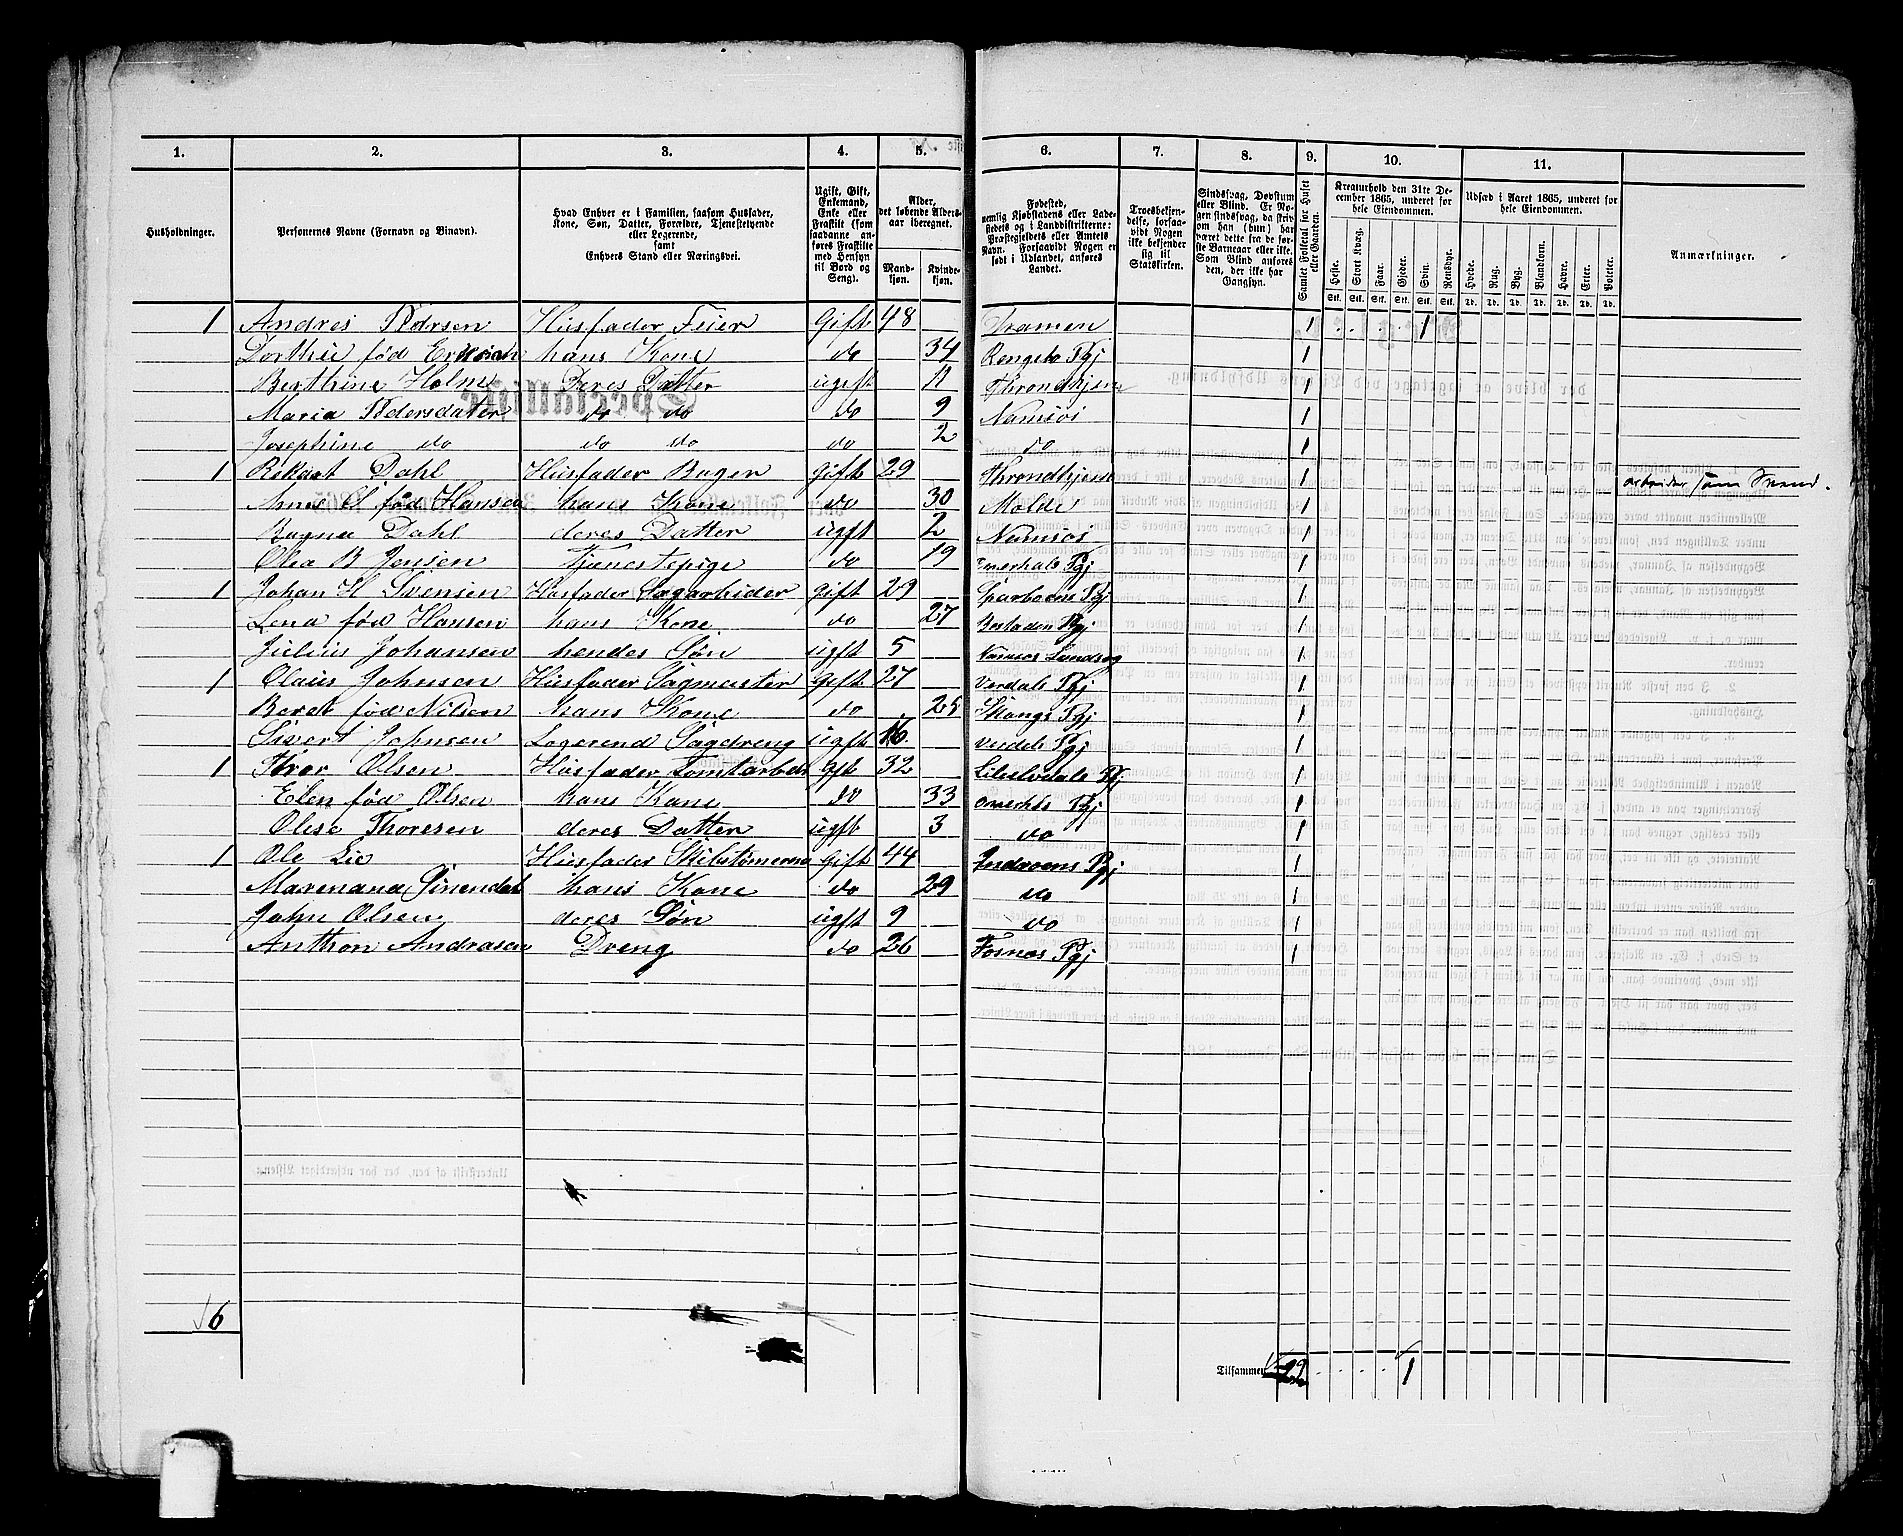 1. 2. 3. 4. 5. 6. 7. 8. 9. 10. 11.
Husholdninger. | Personernes Navne (Fornavn og Binavn). | Hvad Enhver er i Familien, saasom Husfader, Kone, Søn, Datter, Forældre, Tjenestetyende eller Logerende, samt Enhvers Stand eller Næringsvei. | Ugift, Gift, Enkemand, Enke eller Fraskilt (som saadanne anføres Fraskilte med Hensyn til Bord og Seng). | Alder, det løbende Aldersaar iberegnet. Mandkjøn. Kvindekjøn. | Fødested, nemlig Kjøbstadens eller Ladestedets og i Landdistrikterne: Præstegjeldets eller Amtets Navn. Forsaavidt Nogen er født i Udlandet, anføres Landet. | Troesbekjendelse, forsaavidt Nogen ikke bekjender sig til Statskirken. | Sindssvag, Døvstum eller Blind. Er Nogen sindssvag, da skrives om han (hun) har været dette fra de første Barneaar eller ikke. Som Blind anføres den, der ikke har Gangsyn. | Samlet Folketal for Huset eller Gaarden. | Kreaturhold den 31te December 1865, underet for hele Eiendommen. Heste. Stort Kvæg. Faar. Gjeder. Svin. Rensdyr. Stk. Stk. Stk. Stk. Stk. Stk. | Udsæd i Aaret 1865, underet for hele Eiendommen. Hvede. Rug. Byg. Blandkorn. Havre. Erter. Poteter. Td. Td. Td. Td. Td. Td. Td. | Anmærkninger.
1 Andres Pedersen Husfader Feier Gift 48 Dramen 1 . . . . 1
Dorthie fød Eriksen hans Kone do 34 1
Berthine Holm Deres Datter ugift 11 Throndhjem 1
Maria Pedersdater do do do 9 Namsos 1
Josephine do do do do 2 do 1
1 Rikart Dahl Husfader Bager gift 29 Throndhjem 1 arbeider som Svend.
fød Hansen hans Kone do 30 Molde 1
Ragna Dahl deres Datter ugft 2 Namsos 1
Olea B Jensen Tjenestepige do 19 Overhals Pgj 1
1 Johan H Svensen Husfader Sagarbider gift 29 Sparboens Pgj 1
Lena fød Hansen hans Kone do 27 Pgj 1
Julius Johansen hendes Søn ugft 5 Namsos Landsog 1
1 Olaus Johnsen Husfader Sagmester gift 27 Verdals Pgj 1
Beret fød Nilsen hans Kone do 25 Skongs Pgj 1
Sivert Johnsen Logerend Sagdreng ugft 16 Verdels Pgj 1
1 Olsen Husfader Tomtarbeder gft 32 Pgj 1
Elen fød Olsen hans Kone do 33 Overhls Pgj 1
Olise Thoresen deres Datter ugft 3 do 1
1 Ole Lie Husfader Skibstømermand gift 44 Inderoens Pgj 1
Marenana hans Kone do 29 do 1
John Olsen deres Søn ugft 9 do 1
Anthon Andrasen Dreng do 26 Fosnes Pgj 1
6
Tilsammen 22 . . . . 1